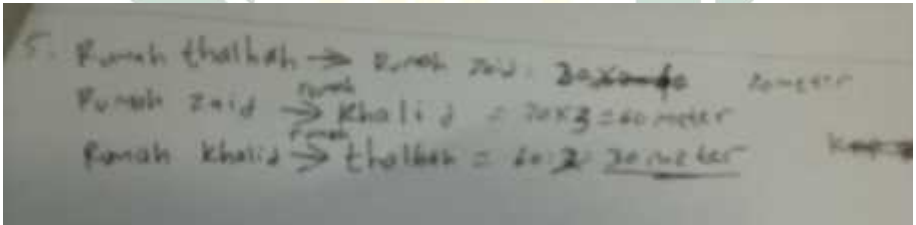 5. Rumah thalhah → Rumah zaid : 20 meter
Rumah zaid → rumah Khalid = 20x3 = 60 meter
Rumah Khalid → rumah thalhah = 60:2 = 30 meter